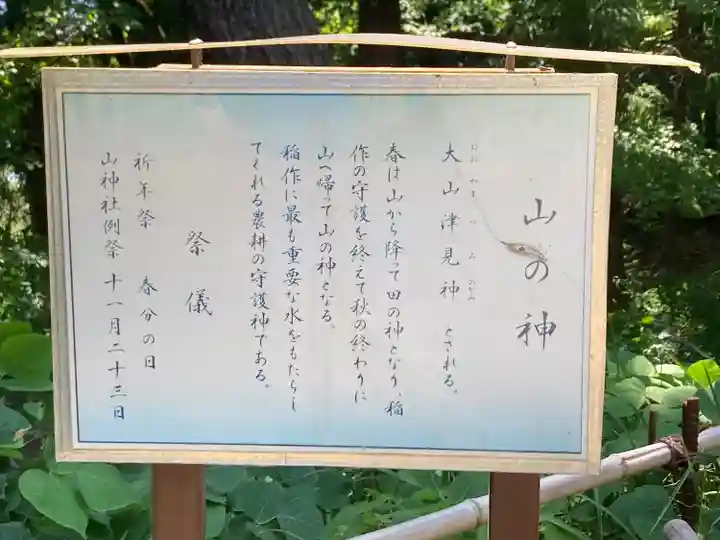 山の神
おおやまつみのかみ
大山津見神 とされる。
春は山から降って田の神となり、稲
作の守護を終えて秋の終わりに
山へ帰って山の神となる。
稲作に最も重要な水をもたらし
てくれる農耕の守護神である。
祭儀
祈年祭 春分の日
山神社例祭 十一月二十三日